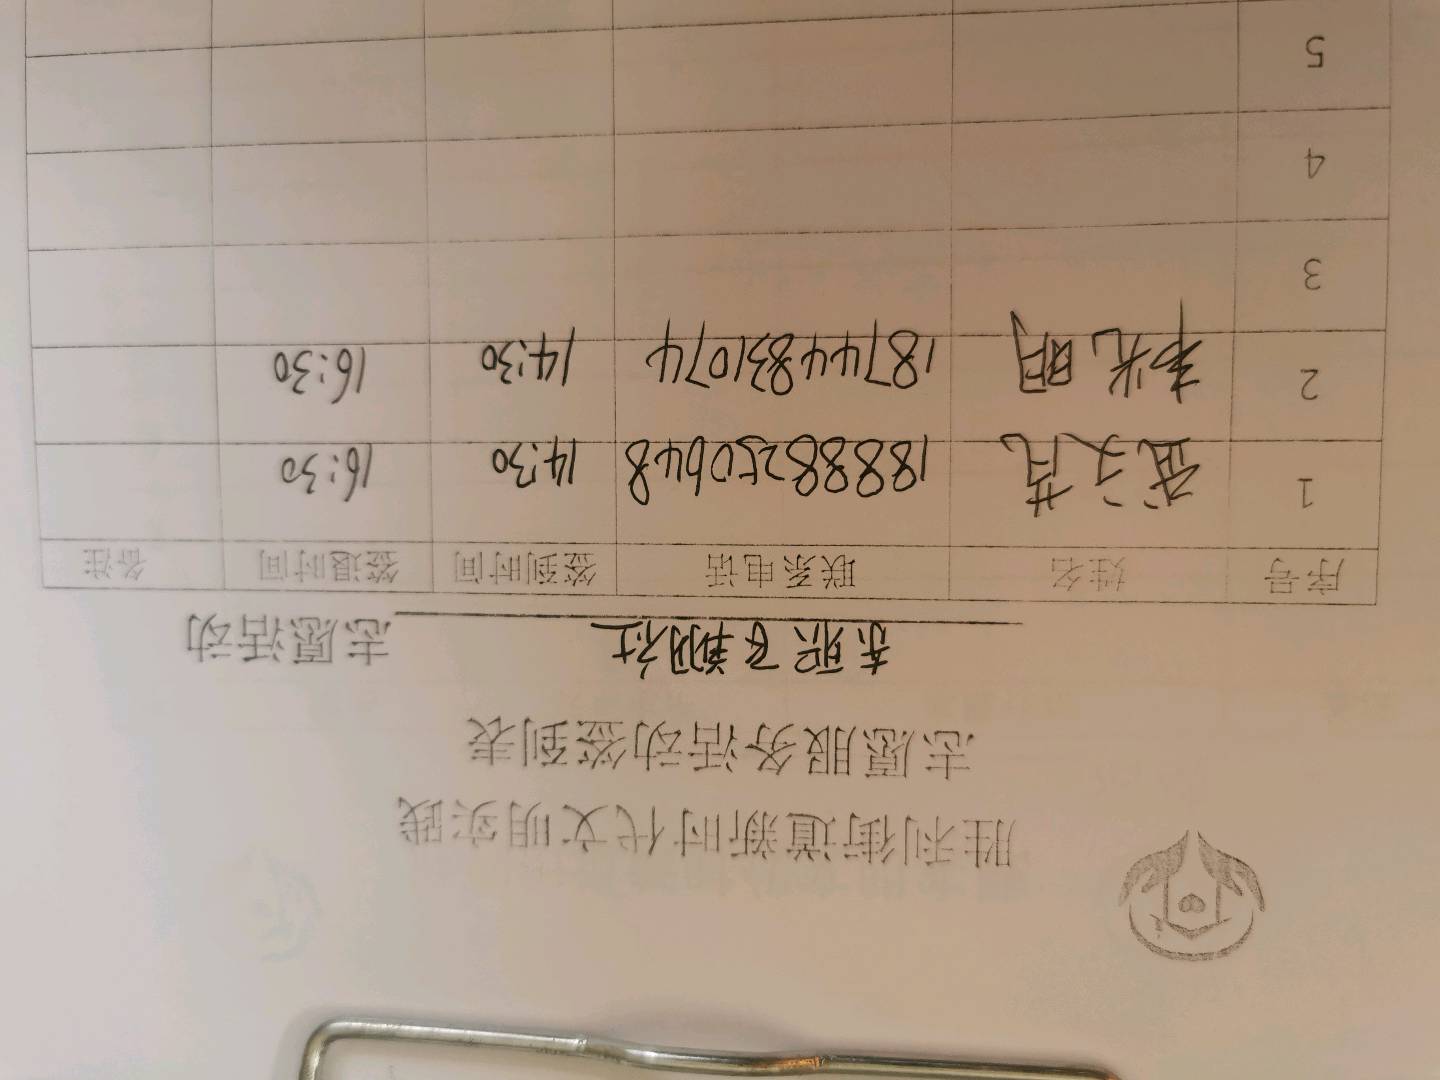 胜利街道新时代文明实践
志愿服务活动签到表
东职飞翔社 志愿活动
序号 姓名 联系电话 签到时间 签退时间 备注
1 18888250648 14:30 16:30
2 光明 18744831074 14:30 16:30
3
4
5